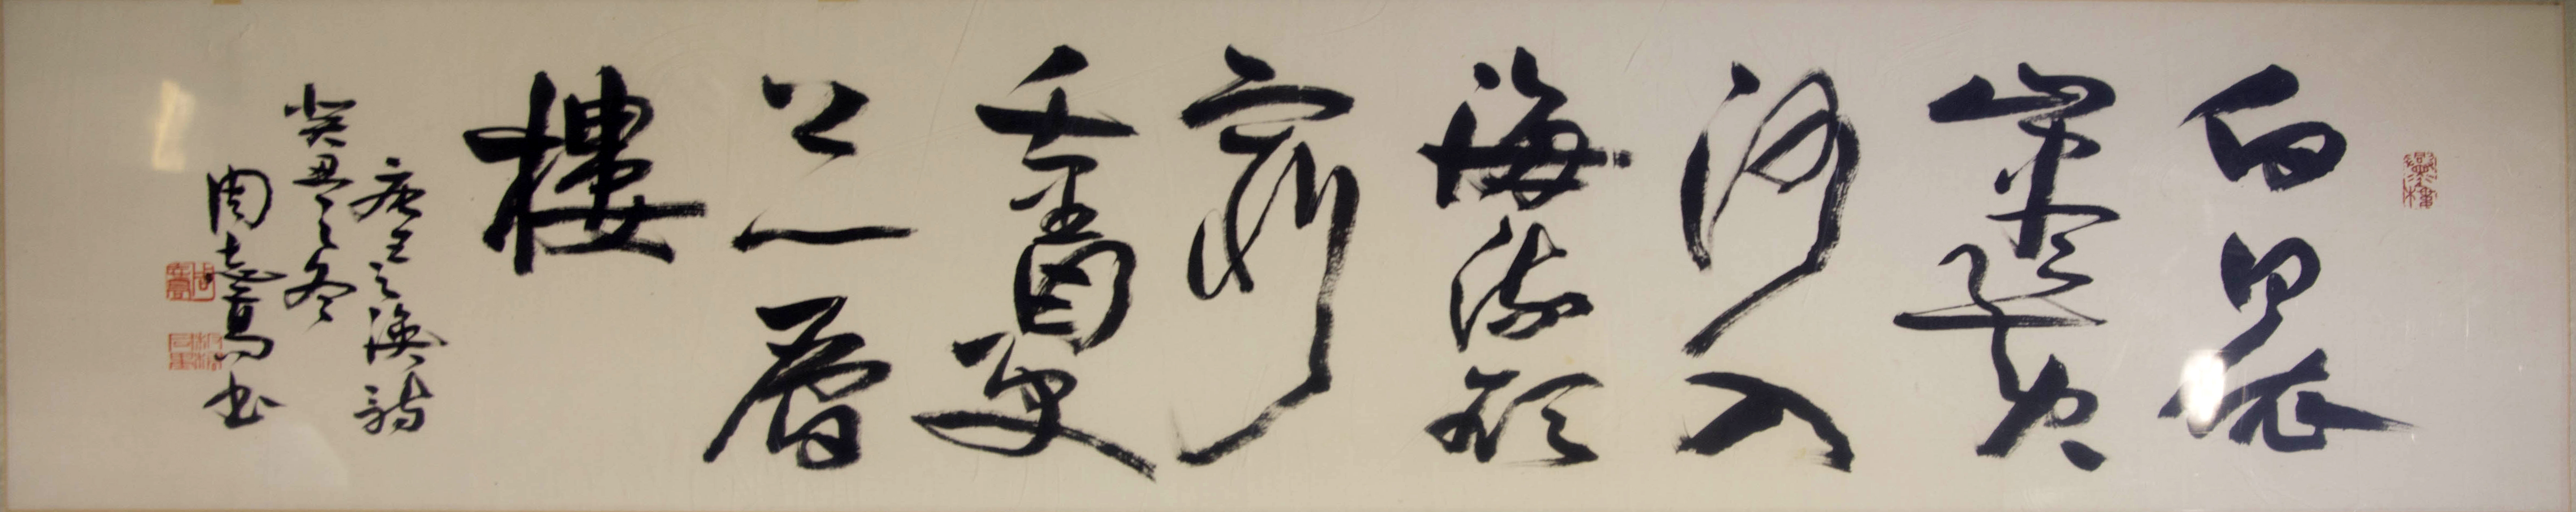 白日依
山盡黃
河入
海流欲
窮
千里目更
上一層
樓
唐王之渙詩
癸丑之冬
周 書